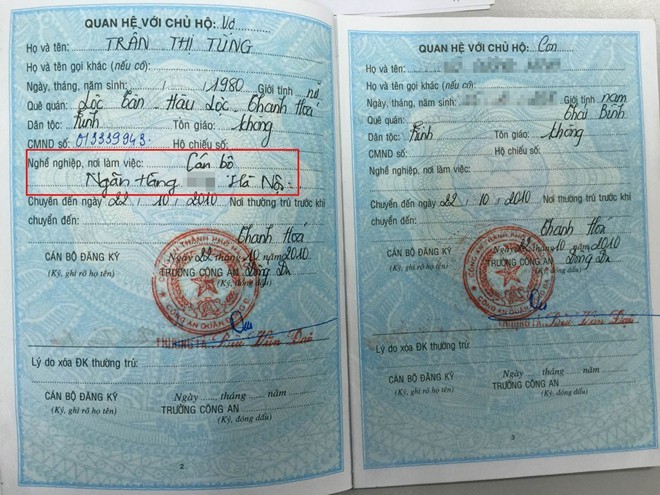 QUAN HỆ VỚI CHỦ HỘ: Vợ
Họ và tên: TRẦN THỊ TÙNG
Họ và tên gọi khác (nếu có):
Ngày, tháng, năm sinh: / /1980 Giới tính: nữ
Quê quán: Lộc Tân - Hậu Lộc - Thanh Hoá
Dân tộc: Kinh Tôn giáo: không
CMND số: 013339943 Hộ chiếu số:
Nghề nghiệp, nơi làm việc: Cán bộ
Ngân Hàng Hà Nội
Chuyển đến ngày 22 / 10 / 2010 Nơi thường trú trước khi
chuyển đến:
Thanh Hoá
Ngày 22 tháng 10 năm 2010
CÁN BỘ ĐĂNG KÝ TRƯỞNG CÔNG AN
(Ký, ghi rõ họ tên)
Lý do xóa ĐK thường trú:
Ngày ...... tháng ...... năm
CÁN BỘ ĐĂNG KÝ TRƯỞNG CÔNG AN
(Ký, ghi rõ họ tên) (Ký, đóng dấu)
2
QUAN HỆ VỚI CHỦ HỘ: Con
Họ và tên:
Họ và tên gọi khác (nếu có):
Ngày, tháng, năm sinh: Giới tính: nam
Quê quán: Thái Bình
Dân tộc: Kinh Tôn giáo: không
CMND số: Hộ chiếu số:
Nghề nghiệp, nơi làm việc:
Chuyển đến ngày 22 / 10 / 2010 Nơi thường trú trước khi
chuyển đến:
Thanh Hoá
22 tháng 10 năm 2010
CÁN BỘ ĐĂNG KÝ TRƯỞNG CÔNG AN
(Ký, ghi rõ họ tên)
Lý do xóa ĐK thường trú:
Ngày ...... tháng ...... năm
CÁN BỘ ĐĂNG KÝ TRƯỞNG CÔNG AN
(Ký, ghi rõ họ tên) (Ký, đóng dấu)
3